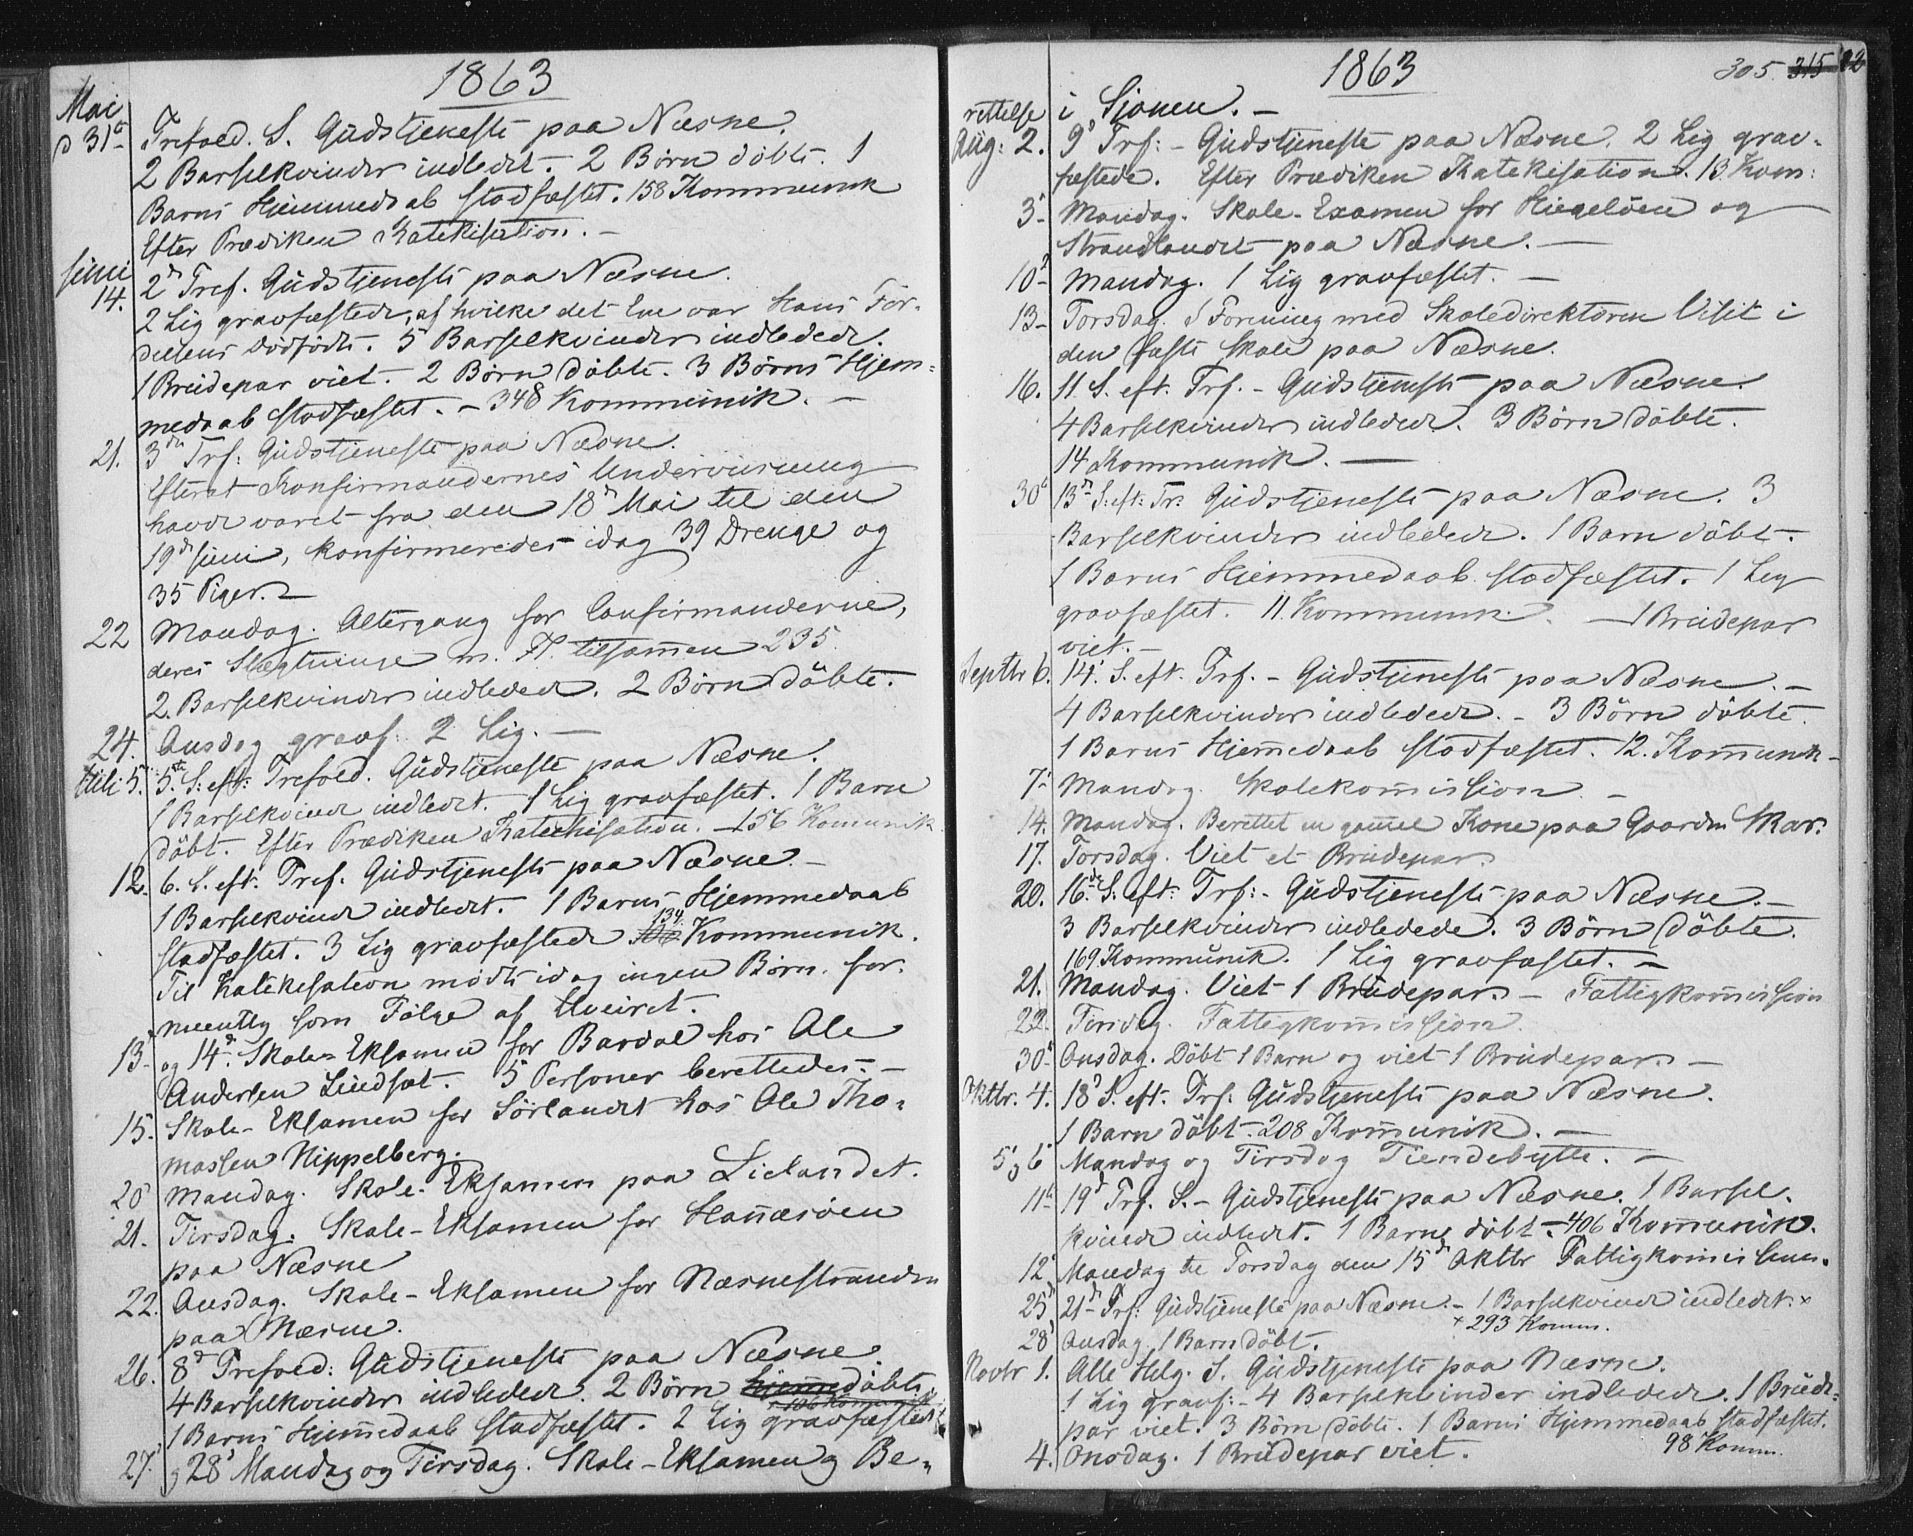 1863
Mai
d 31te Trefold. S. Gudstjeneste paa Næsne.
2 Barselkvinder indledet. 2 Børn döbte. 1
Barns Hjemmedaab stadfæstet. 158 Kommunik
Efter Prædiken Katekisation. —
Juni
14. 2d Tref. Gudstjeneste paa Næsne.
2 Lig gravfæstede, af hvilke det Ene var Hans For-
dødfödte. 5 Barselkvinder indledede.
1 Brudepar viet. — 2 Børn döbte. 3 Børns Hjem-
medaab stadfæstet. — 348 Kommunik. —
21. 3die Trf: Gudstjeneste paa Næsne.
Efterat Konfirmandernes Underviisning
havde varet fra den 18d Mai til den
19d Juni, konfirmeredes idag 39 Drenge og
35 Piger. —
22 Mandag. Altergang for Confirmanderne,
deres Slægtninge m. Fl. tilsammen 235.
2. Barselkvinder indledede. 2 Børn döbte.
24. Onsdag gravf. 2 Lig. —
Juli 5. 5te S. eft: Trefold. Gudstjeneste paa Næsne.
1 Barselkvinde indledet. 1 Lig gravfæstet. 1 Barn
döbt. Efter Prædiken Katechisation. — 156 Komunik.
12. 6. S. eft. Tref. Gudstjeneste paa Næsne. —
1 Barselkvinde indledet. 1 Barns Hjemmedaab
stadfæstet. 3 Lig gravfæstede 134 Kommunik.
Til Katekesation mödte idag ingen Børn, for-
meently som Fölge af Uveiret.
13. og 14d. Skole-Eksamen for Bardal hos Ole
Andersen Lindset. 5 Personer berettedes. —
15. Skole-Eksamen for Sörlandet hos Ole Tho-
massen Hippelberg.
20 Mandag. Skole-Eksamen paa Lielandet.
21. Tirsdag. Skole-Eksamen for Hanærøen
paa Næsne
22. Onsdag. Skole-Eksamen for Næsnestranden
paa Næsne.
26. 8d Trefold: Gudstjeneste paa Næsne
4 Barselkvinder indledede. 2 Börn hjemedöbte
1 Barns Hjemedaab stadfæstet. 2 Lig gravfæstede
27. og 28d Mandag og Tirsdag. Skole-Eksamen og Be-
1863
305. 315
rettelse i Sjonen. —
Aug: 2. 9d Trf: — Gudstjeneste paa Næsne. 2 Lig grav-
fæstede. Efter Prædiken Katekisation. 13 Kom:
3. Mandag. Skole-Examen for Hugelöen og
Strandlandet paa Næsne. —
10 Mandag. 1 Lig gravfæstet. —
13 Torsdag. I Forening med Skoledirektören Visit i
den faste Skole paa Næsne.
16. 11 S. eft. Trf. — Gudstjeneste paa Næsne.
4 Barselkvinder indledede. 3 Børn döbte.
14 Kommunik. —
30 13d S. eft: Tr. Gudstjeneste paa Næsne. 3
Barselkvinder indledede. 1 Barn döbt.
1 Barns Hjemmedaab stadfæstet. 1 Lig
gravfæstet. 11. Kommunik. — 1 Brudepar
viet. —
Septbr 6. 14. S. eft. Trf. — Gudstjeneste paa Næsne. —
4 Barselkvinder indledede. — 3 Børn döbte.
1 Barns Hjemedaab stadfæstet. 12. Komunik —
7. Mandag. Skolekomission —
14. Mandag. Berettet en gamel Kone paa Gaarden Skar.
17. Torsdag. Viet et Brudepar.
20. 16de S. eft: Trf: — Gudstjeneste paa Næsne. —
3 Barselkvinder indledede. 3 Börn döbte.
169 Kommunik. 1 Lig gravfæstet. —
21. Mandag. Viet 1 Brudepar. — Fattigkomission
22. Tirsdag. Fattigkomission.
30 Onsdag. Döbt 1 Barn og viet 1 Brudepar. —
Oktbr. 4. 18d S. eft. Trf. Gudstjeneste paa Næsne.
1 Barn döbt. 208 Komunik. —
5 og 6 Mandag og Tirsdag Tiendebytte. —
11 19d Trf. S. — Gudstjeneste paa Næsne. 1 Barsel-
kvinde indledet. 1 Barn döbt. — 406 Komunik.
12 Mandag til Torsdag den 15d Oktbr Fattigkomission.
25d 21d Trf: Gudstjeneste paa Næsne. — 1 Barselkvinde indledet. ×
× 293 Komm.
28 Onsdag 1 Barn döbt.
Novbr 1. Alle Helg. S. Gudstjeneste paa Næsne.
1 Lig gravf: — 4 Barselkvinder indledede. 1 Brude-
par viet. 3 Börn döbte. 1 Barns Hjemmedaab stadfæstet.
98 Komm.
4. Onsdag. 1 Brudepar viet.